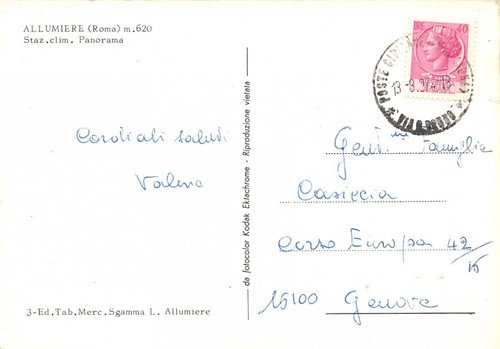 ALLUMIERE (Roma) m.620
Staz.clim. Panorama
Cordiali saluti
Valerie
3-Ed.Tab.Merc.Sgamma L. Allumiere
da fotocolor Kodak Ektachrome - Riproduzione vietata -
LIRE 40
POSTE
13-8.
Gent.ma Famiglia
Casiccia
Corso Europa 42/15
15100 Genova